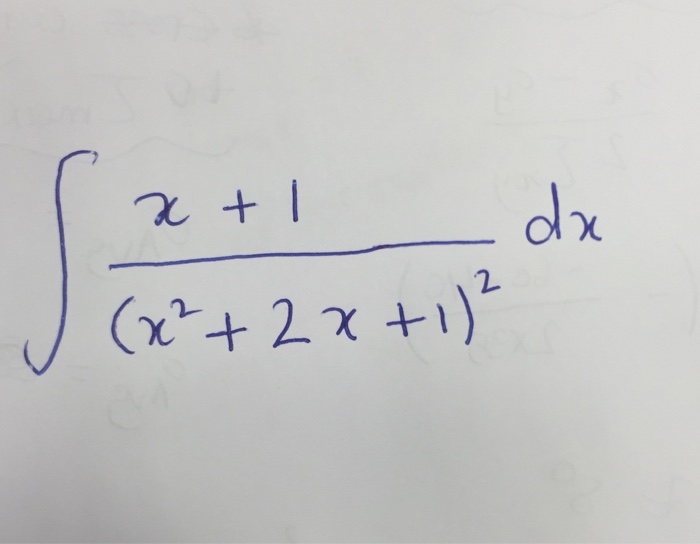 ∫ (x + 1) / (x² + 2x + 1)² dx